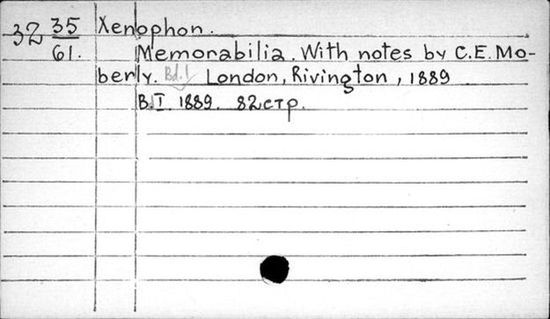 32 35 Xenophon.
61. Memorabilia. With notes by C.E. Mo-
berly. Bd. I London, Rivington, 1889
B. I. 1889. 82 стр.